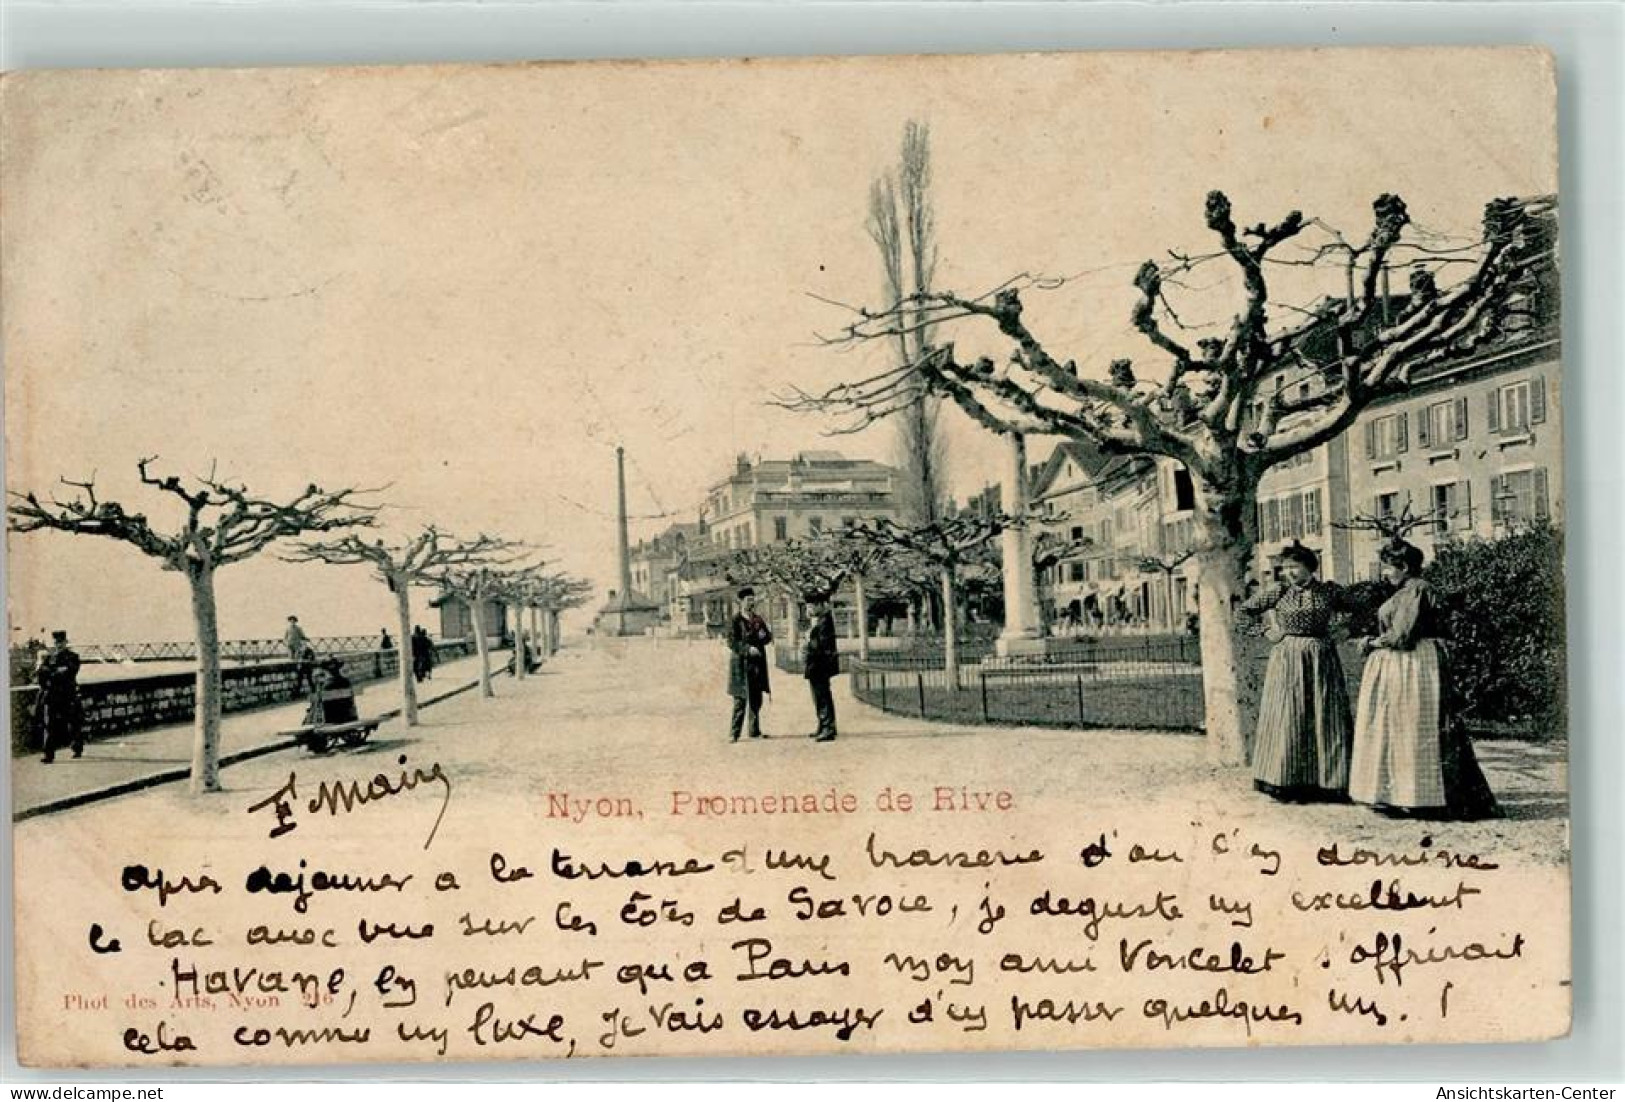 F Mairy
Nyon, Promenade de Rive
Après dejeuner a la terrasse d'une brasserie d'ou l'en domine
le lac avec vue sur les côtes de Savoie, je deguste un excellent
Havane, en pensant qu'à Paris mon ami Voncelet s'offrirait
Phot des Arts, Nyon 216
cela comme un luxe, je vais essayer d'en passer quelques uns. !
Ansichtskarten-Center